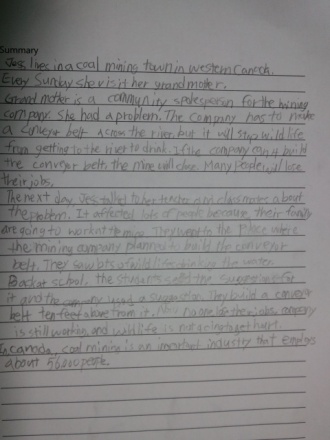 Summary
Jess lives in a coal mining town in western Canada.
Every Sunday she visit her grandmother.
Grand mother is a community spokesperson for the mining
company. She had a problem. The company has to make
a conveyer belt across the river, but it will stop wild life
from getting to the river to drink. If the company can't build
the conveyor belt, the mine will close. Many People will lose
their jobs.
The next day Jess talked to her teacher and classmates about
the problem. It affected lots of people because, their family
are going to work in the mine. They went to the place where
the mining company planned to build the conveyor
belt. They saw lots of wildlife drinking the water.
Back at school, the students the
it and the company a suggestion. They build a conveyor
belt ten feet above from it. Also no one lose their jobs, company
is still working and wild life is not getting hurt.
In canada, coal mining is an important industry that employs
about 56,000 people.